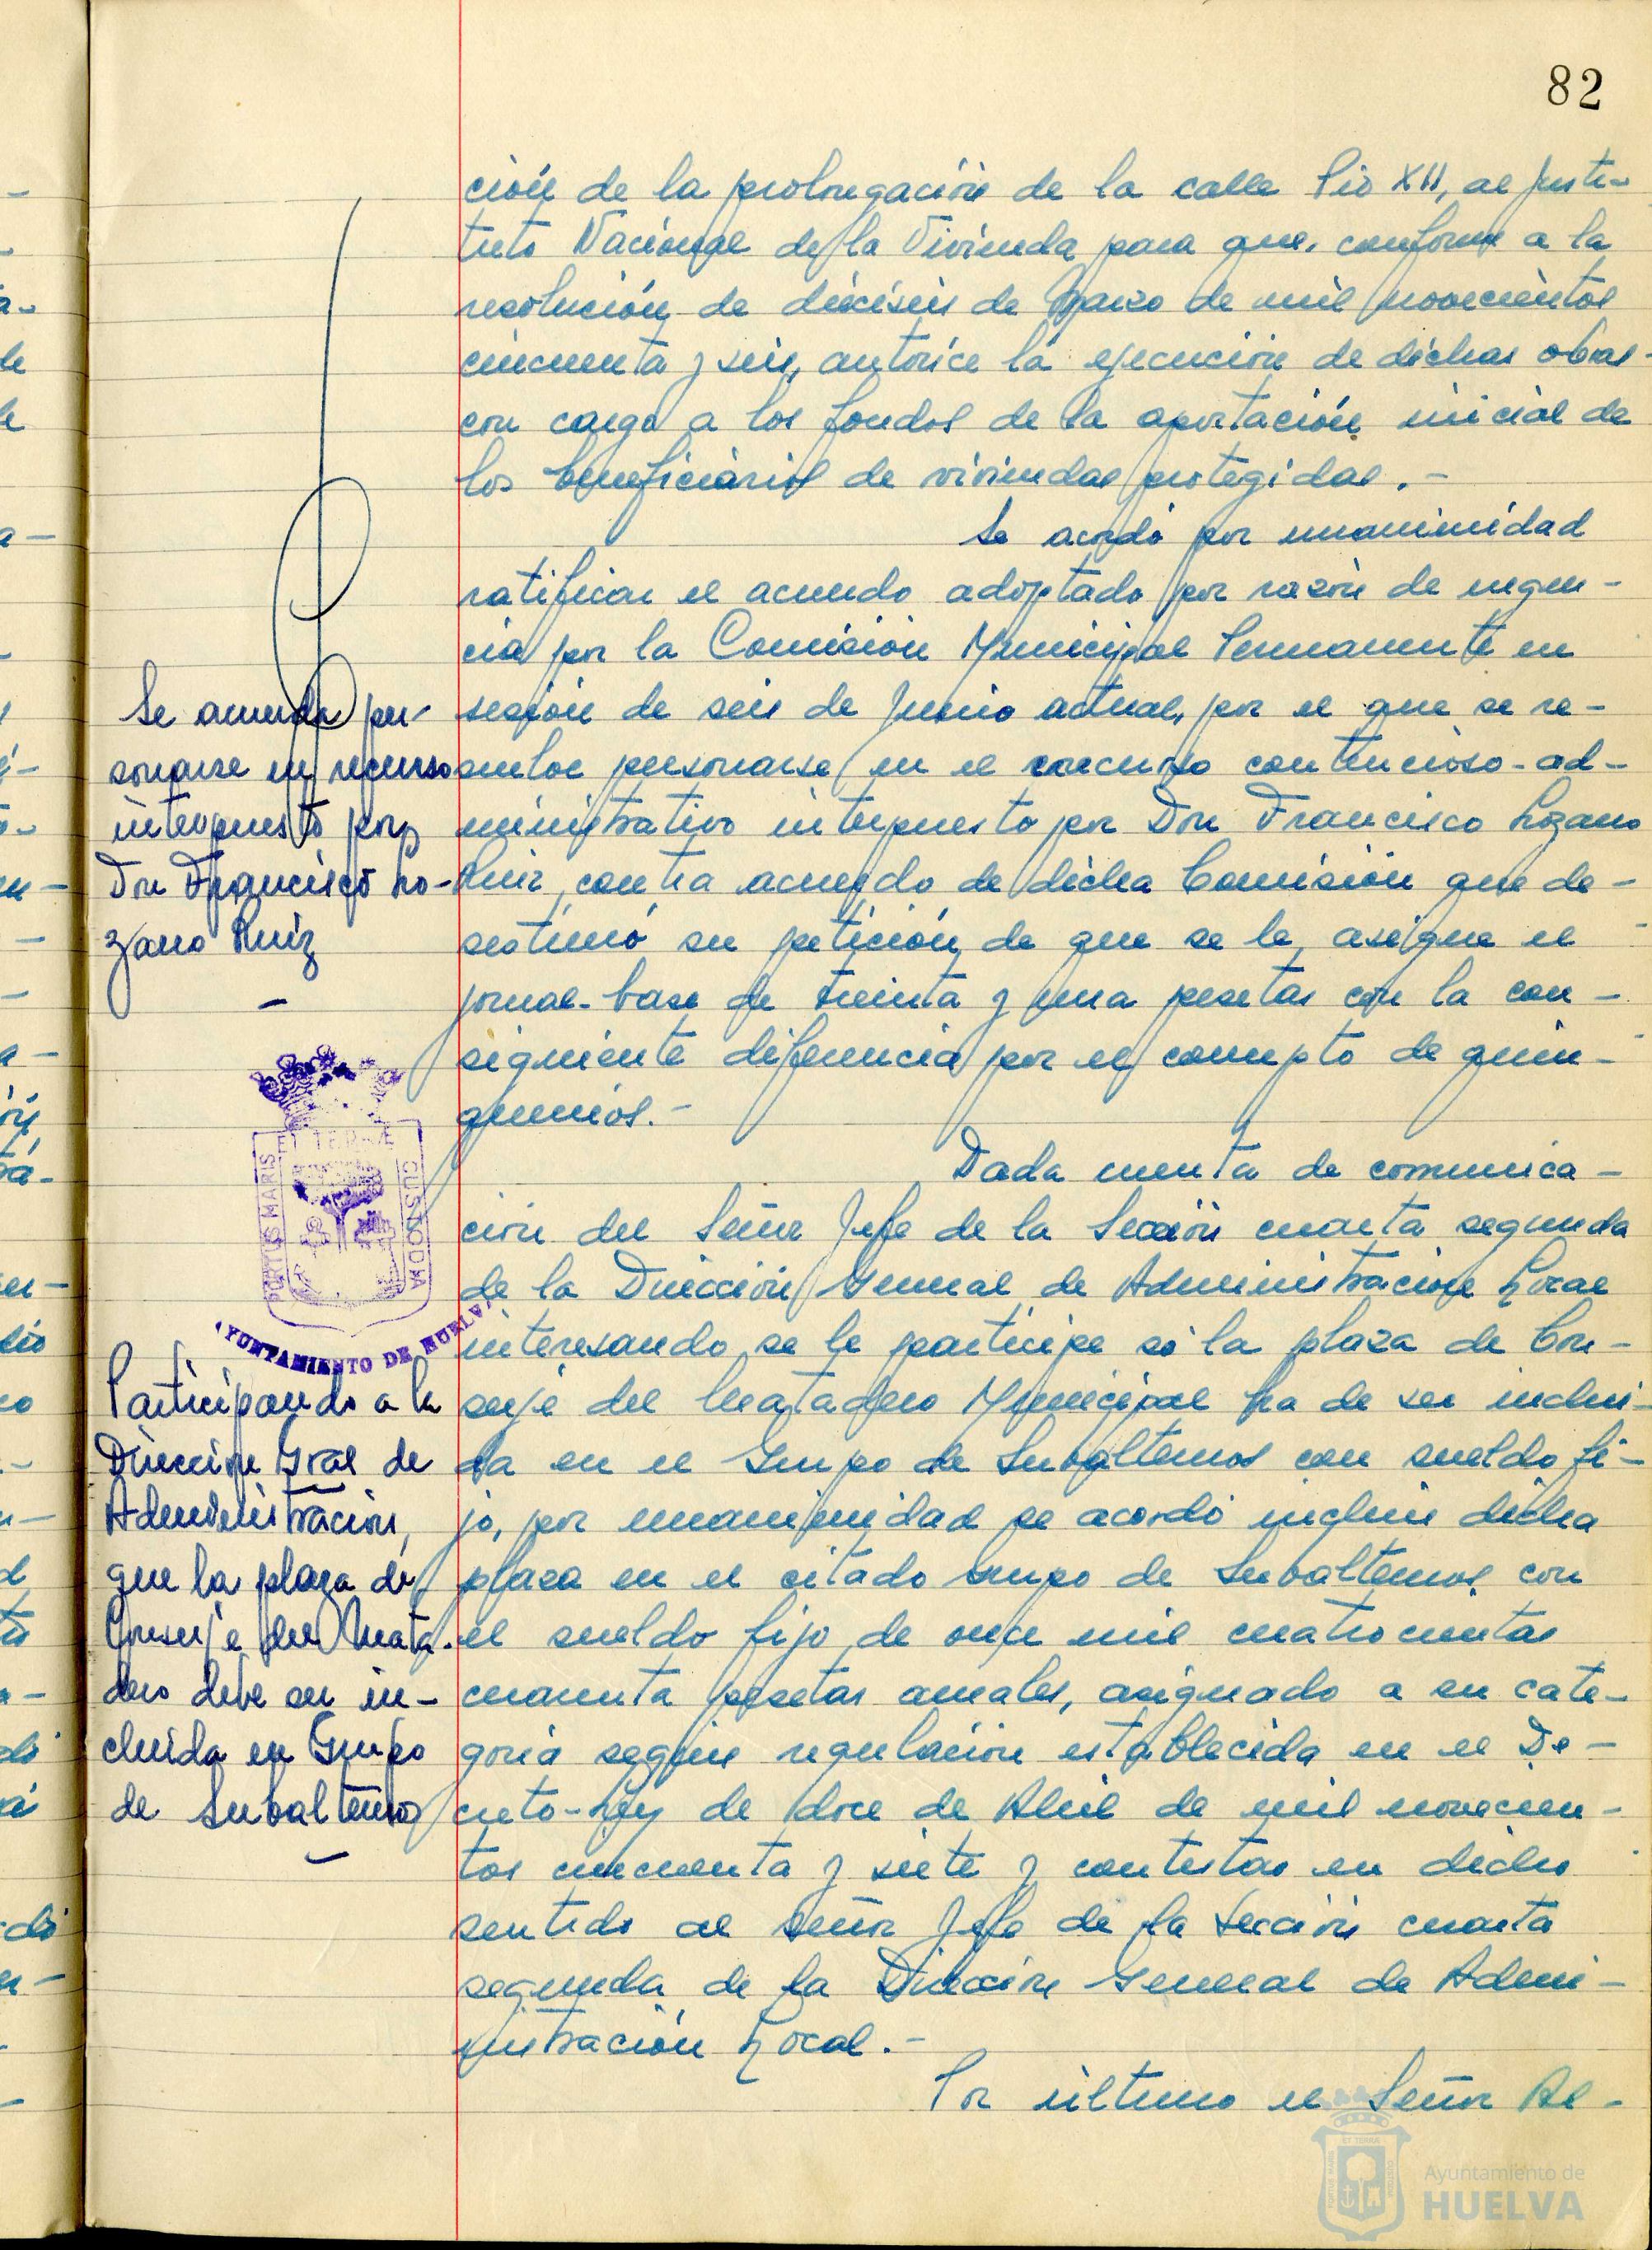 82
ción de la prolongación de la calle Pio XII, al Insti-
tuto Nacional de la Vivienda para que, conforme a la
resolución de dieciséis de Marzo de mil novecientos
cincuenta y seis, autorice la ejecución de dichas obras
con cargo a los fondos de la aportación inicial de
los beneficiarios de viviendas protegidas.-
Se acordó por unanimidad
ratificar el acuerdo adoptado por razón de urgen-
cia por la Comisión Municipal Permanente en
sesión de seis de Junio actual, por el que se re-
suelve personarse en el recurso contencioso-ad-
ministrativo interpuesto por Don Francisco Lozano
Ruiz, contra acuerdo de dicha Comisión que de-
sestimó su petición de que se le asigne el
jornal-base de treinta y una pesetas con la con-
siguiente diferencia por el concepto de quin-
quenios.-
Se acuerda per-
sonarse en recurso
interpuesto por
Don Francisco Lo-
zano Ruiz
PORTUS MARIS ET TERRÆ CUSTODIA
AYUNTAMIENTO DE HUELVA
Dada cuenta de comunica-
ción del Señor Jefe de la Sección cuarta segunda
de la Dirección General de Administración Local
interesando se le participe si la plaza de Con-
serje del Matadero Municipal ha de ser inclui-
da en el Grupo de Subalternos con sueldo fi-
jo, por unanimidad se acordó incluir dicha
plaza en el citado Grupo de Subalternos, con
el sueldo fijo de once mil cuatrocientas
cuarenta pesetas anuales, asignado a su cate-
goría según regulación establecida en el De-
creto-Ley de doce de Abril de mil novecien-
tos cincuenta y siete y contestar en dicho
sentido al Señor Jefe de la Sección cuarta
segunda de la Dirección General de Admi-
nistración Local.-
Participando a la
Dirección Gral de
Administración,
que la plaza de
Conserje del Mata-
dero debe ser in-
cluida en Grupo
de Subalternos
Por último el Señor Al-
Ayuntamiento de
HUELVA